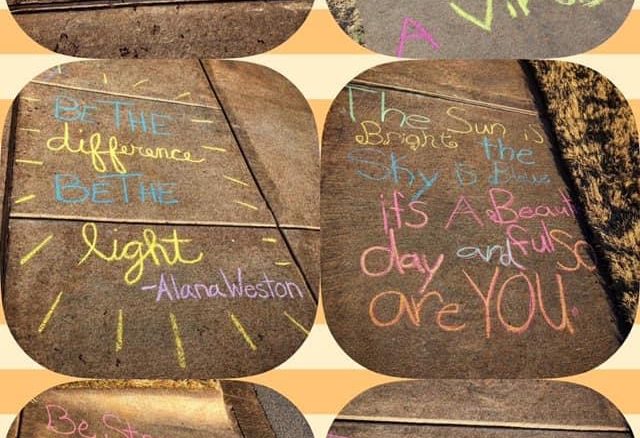 A
BE THE
difference
BE THE
light
-Alana Weston
The Sun is
Bright the
Sky is Blue
it's A Beaut
day and ful So
are YOU.
Be